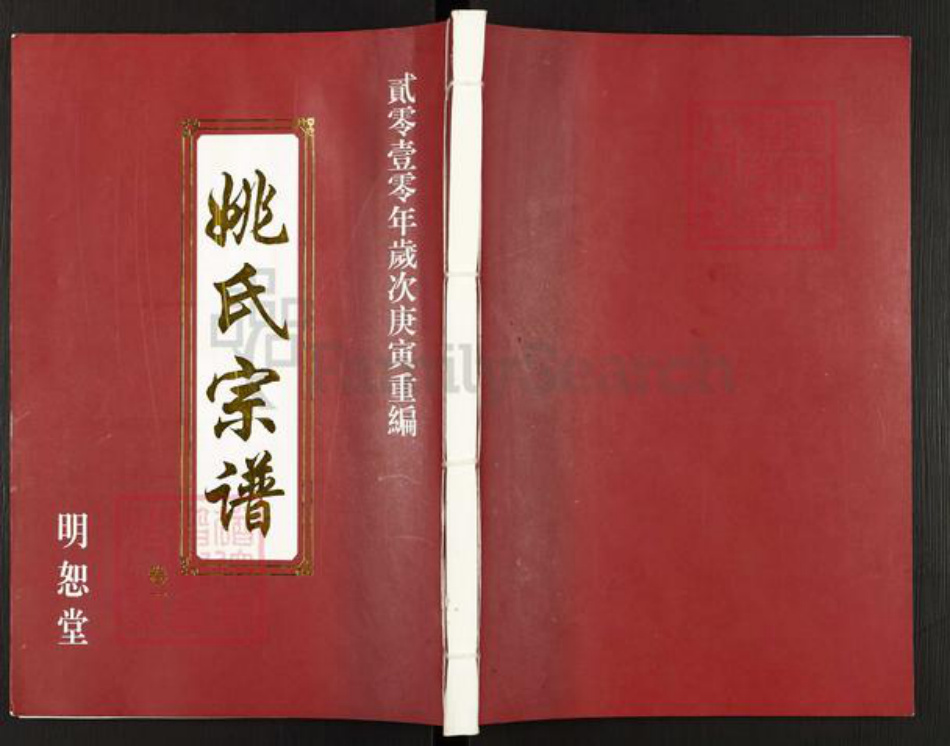 貳零壹零年歲次庚寅重編
姚氏宗谱
卷一
明恕堂
FamilySearch